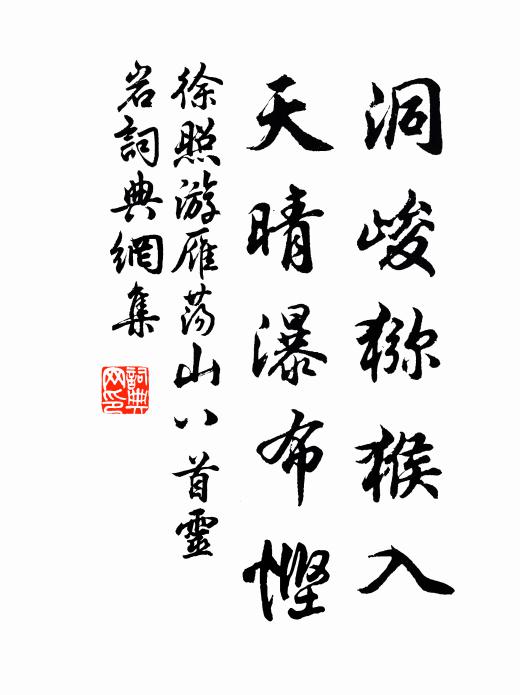 洞峻猕猴入
天晴瀑布悭
徐照游雁荡山八首靈
岩詞典網集
詞典
网印